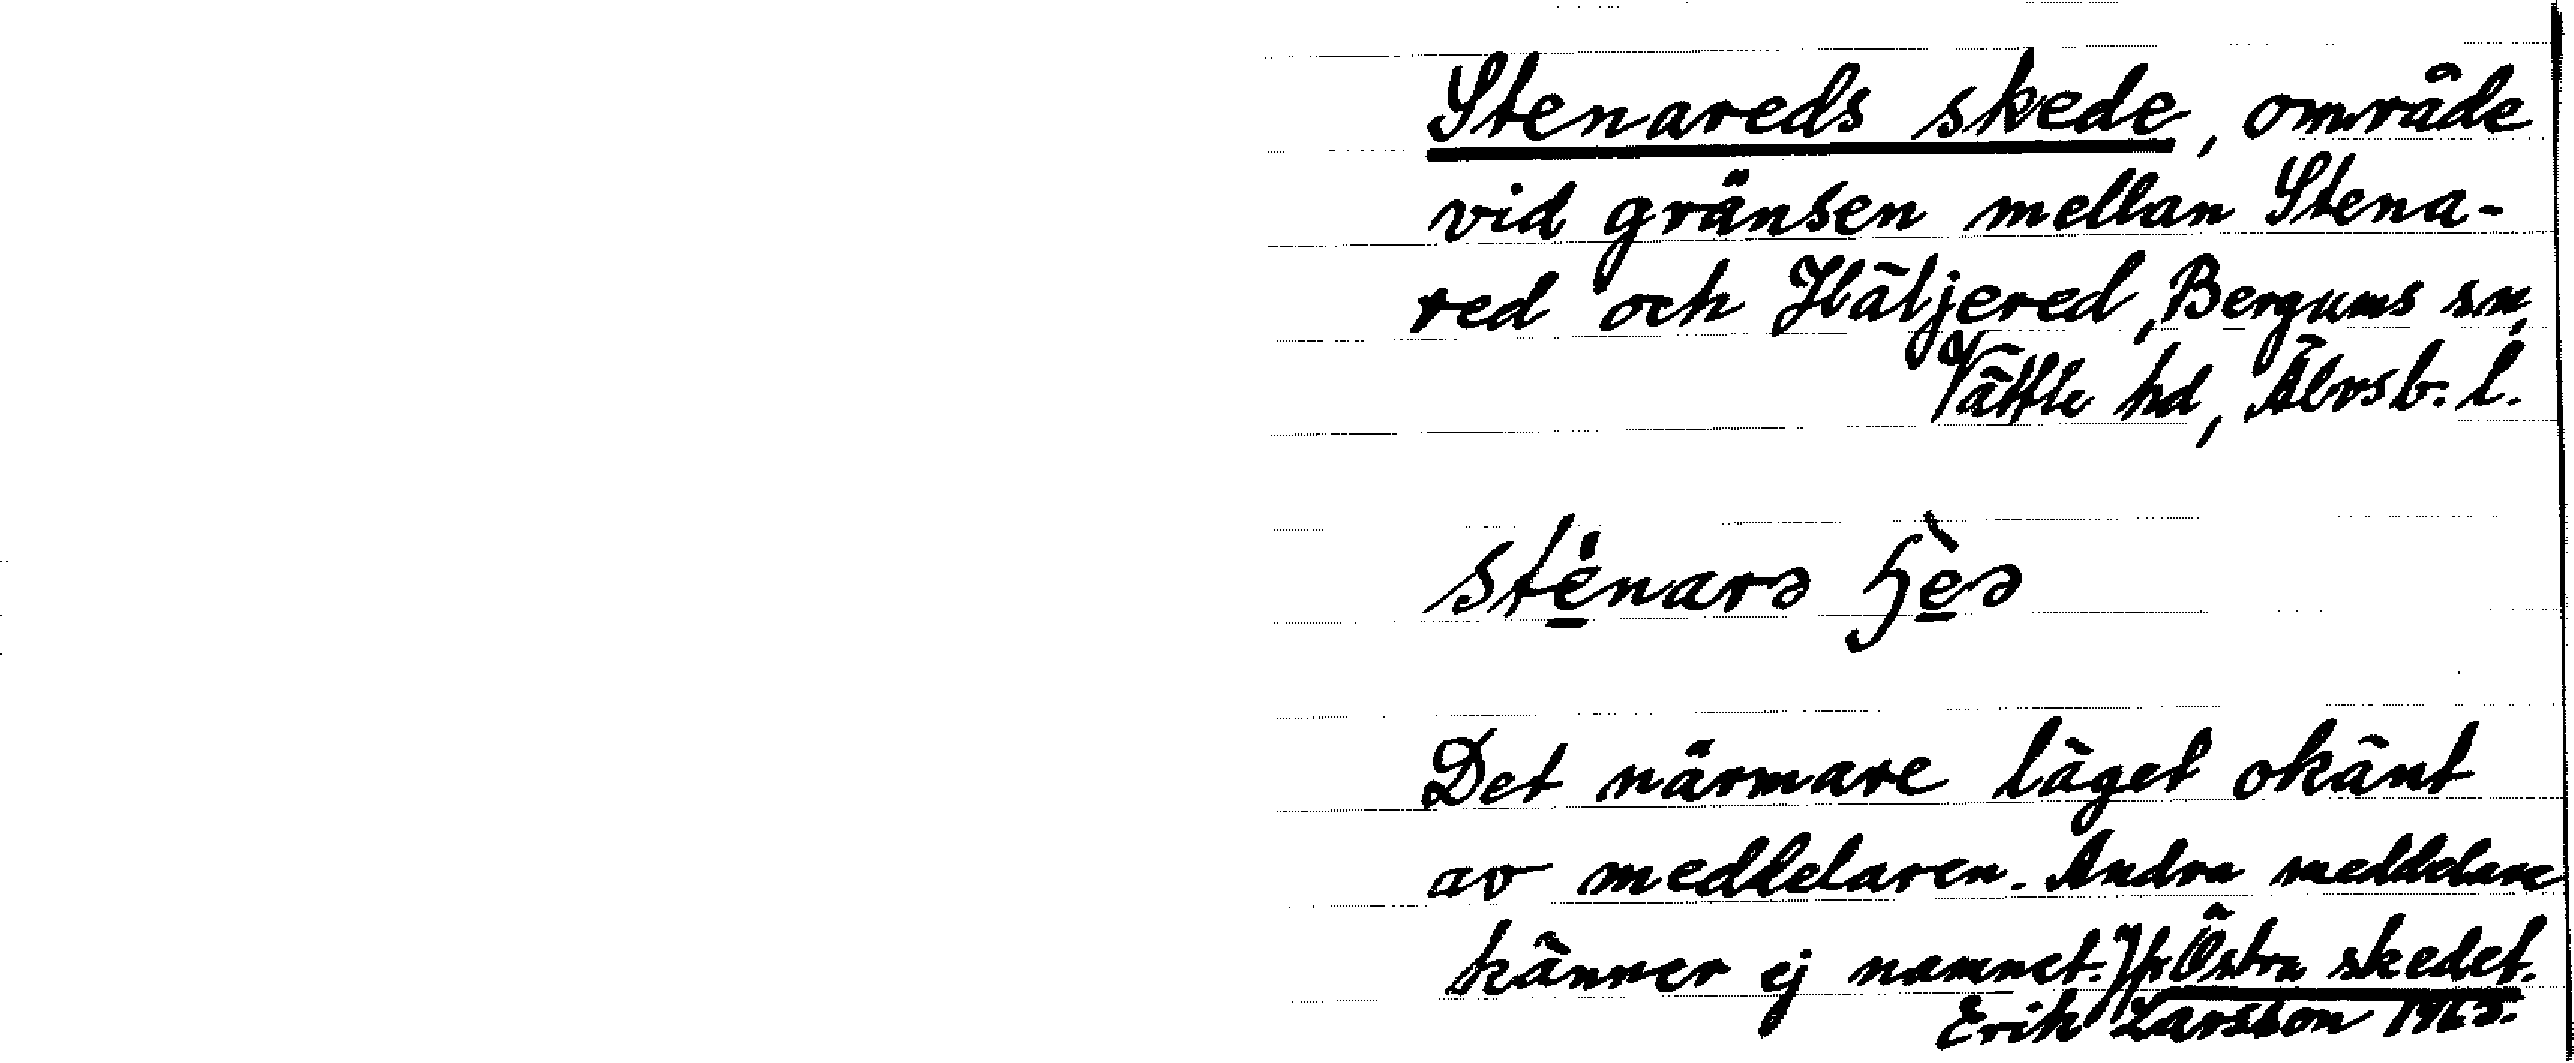 Stenareds skede, område
vid gränsen mellan Stena-
red och Häljered, Bergums sn,
Vättle hd, Älvsb. l.
stėnarə ɧèə
Det närmare läget okänt
av meddelaren. Andra meddelare
känner ej namnet. Jfr Östra skedet.
Erik Larsson 1965.